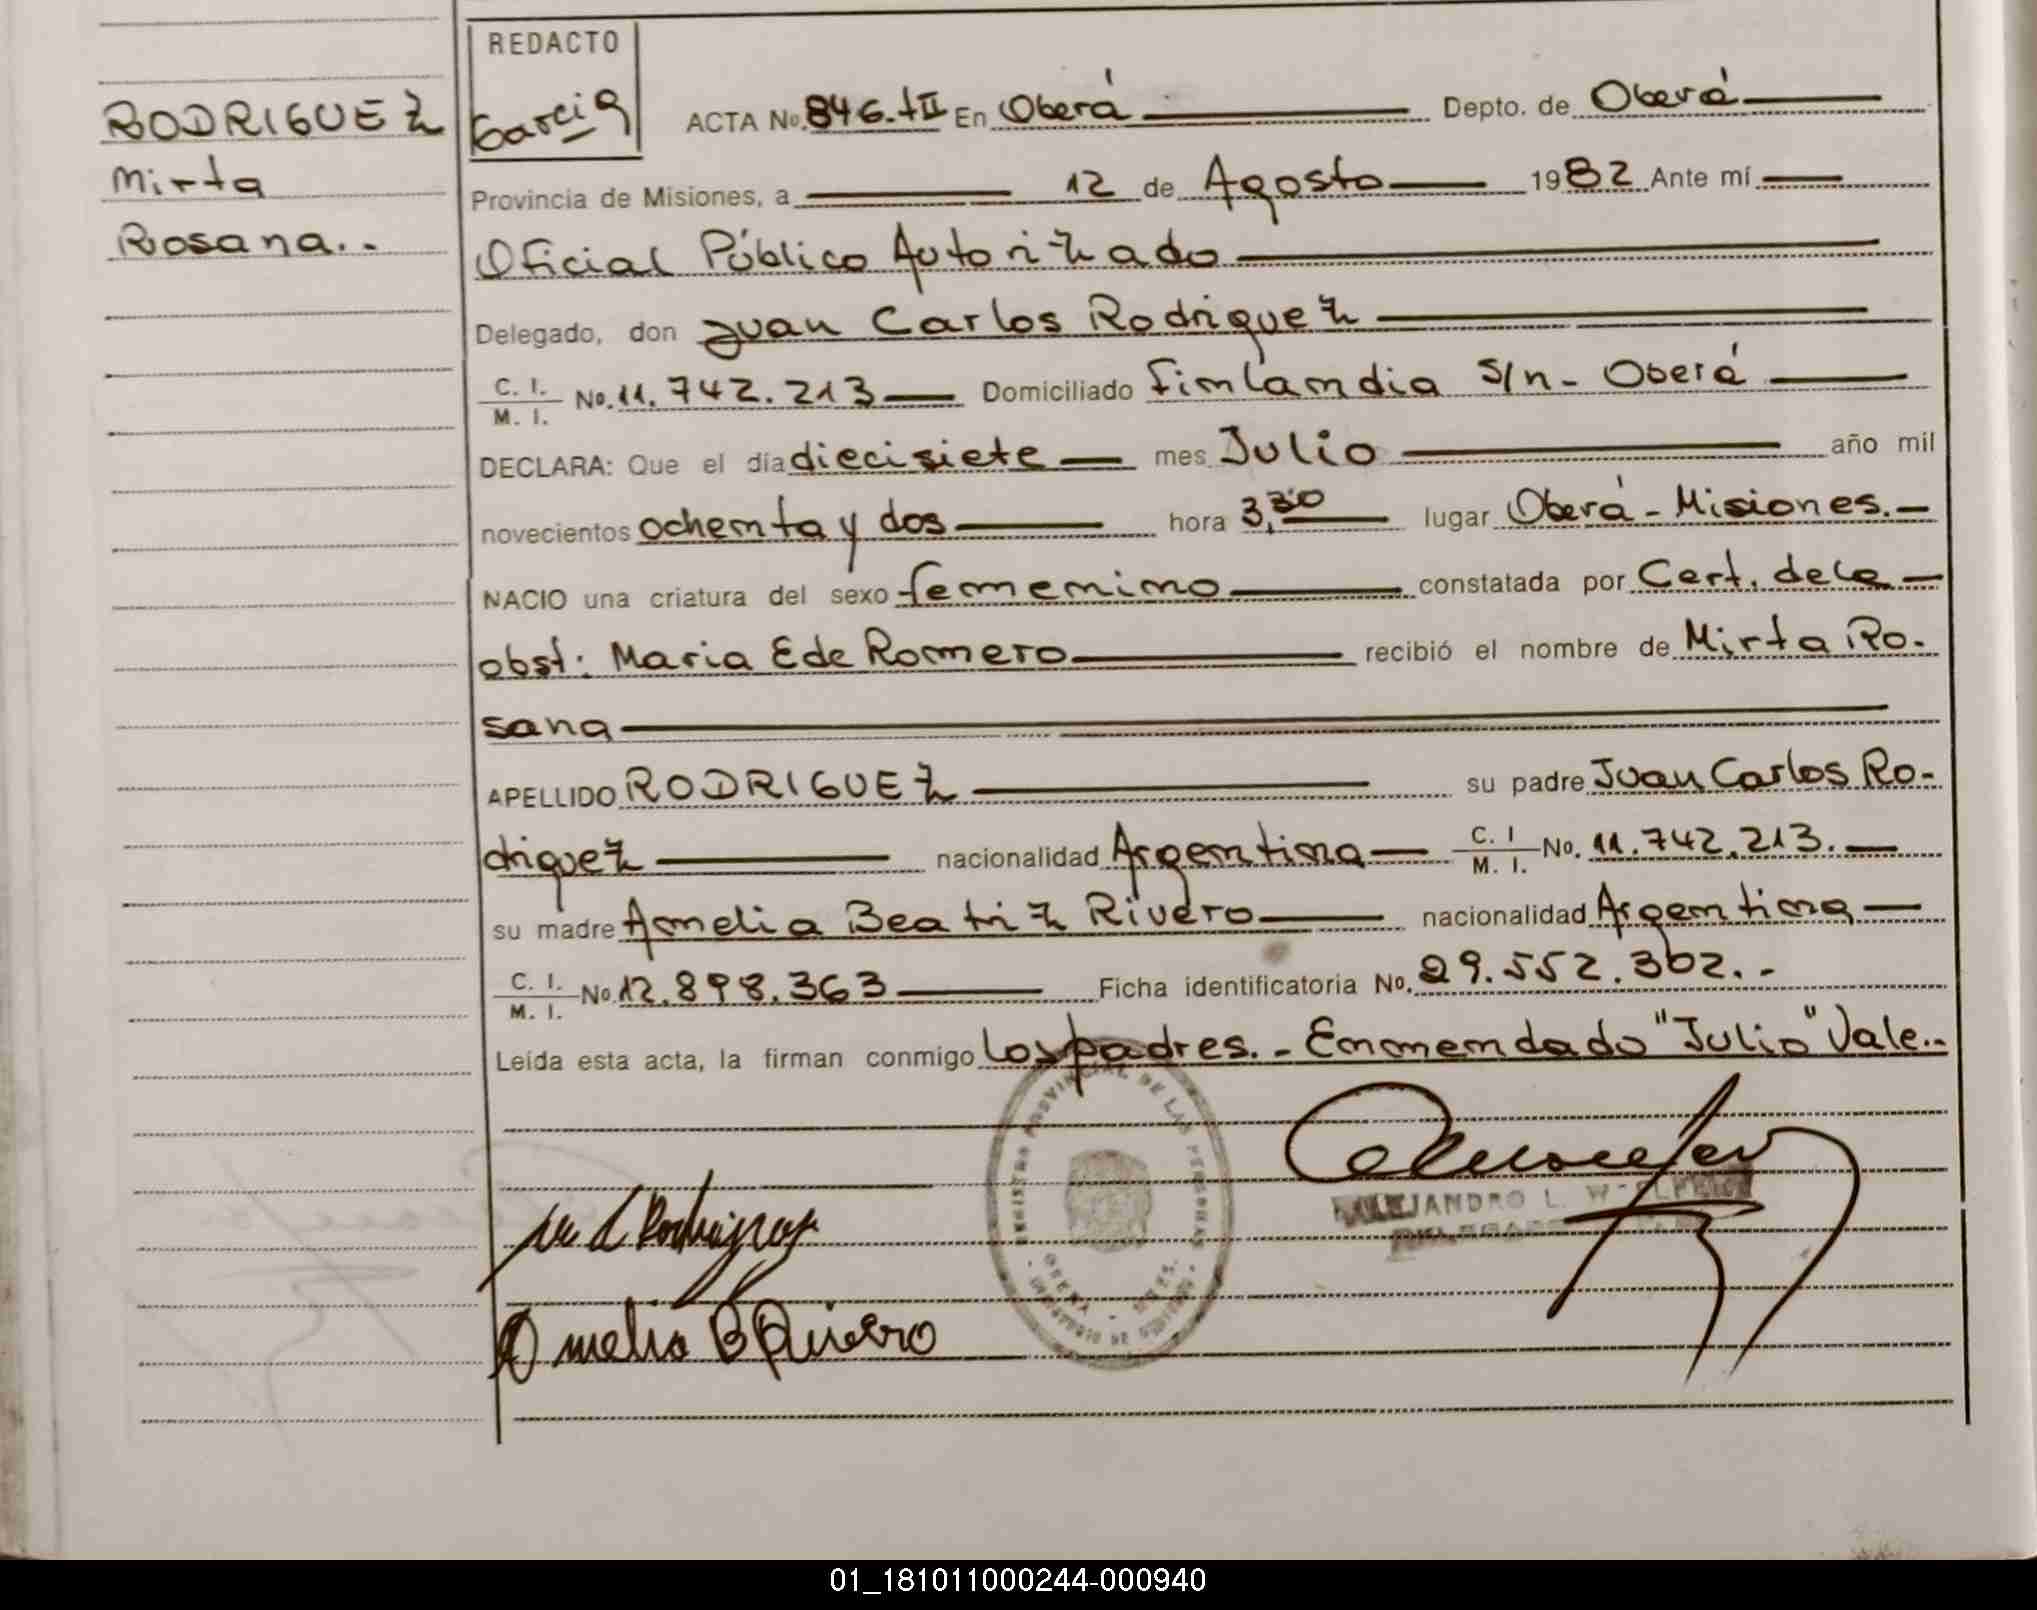 REDACTO
RODRIGUEZ
Mirta
Rosana..
Garcia
ACTA No. 846.tII En Oberá Depto. de Oberá
Provincia de Misiones, a 12 de Agosto 1982 Ante mí
Oficial Público Autorizado
Delegado, don Juan Carlos Rodriguez
C. I. / M. I. No. 11.742.213 Domiciliado Finlandia S/n - Oberá
DECLARA: Que el día diecisiete mes Julio año mil
novecientos ochenta y dos hora 3,30 lugar Oberá - Misiones.-
NACIO una criatura del sexo femenino constatada por Cert. de la
obst: Maria E de Romero recibió el nombre de Mirta Ro-
sana
APELLIDO RODRIGUEZ su padre Juan Carlos Ro-
driguez nacionalidad Argentina C. I / M. I. No. 11.742.213.
su madre Amelia Beatriz Rivero nacionalidad Argentina
C. I. / M. I. No. 12.898.363 Ficha identificatoria No. 29.552.302.-
Leída esta acta, la firman conmigo los padres.- Enmendado "Julio" Vale..
REGISTRO PROVINCIAL DE LAS PERSONAS
OBERA
ALEJANDRO L.
Amelia B Rivero
01_181011000244-000940